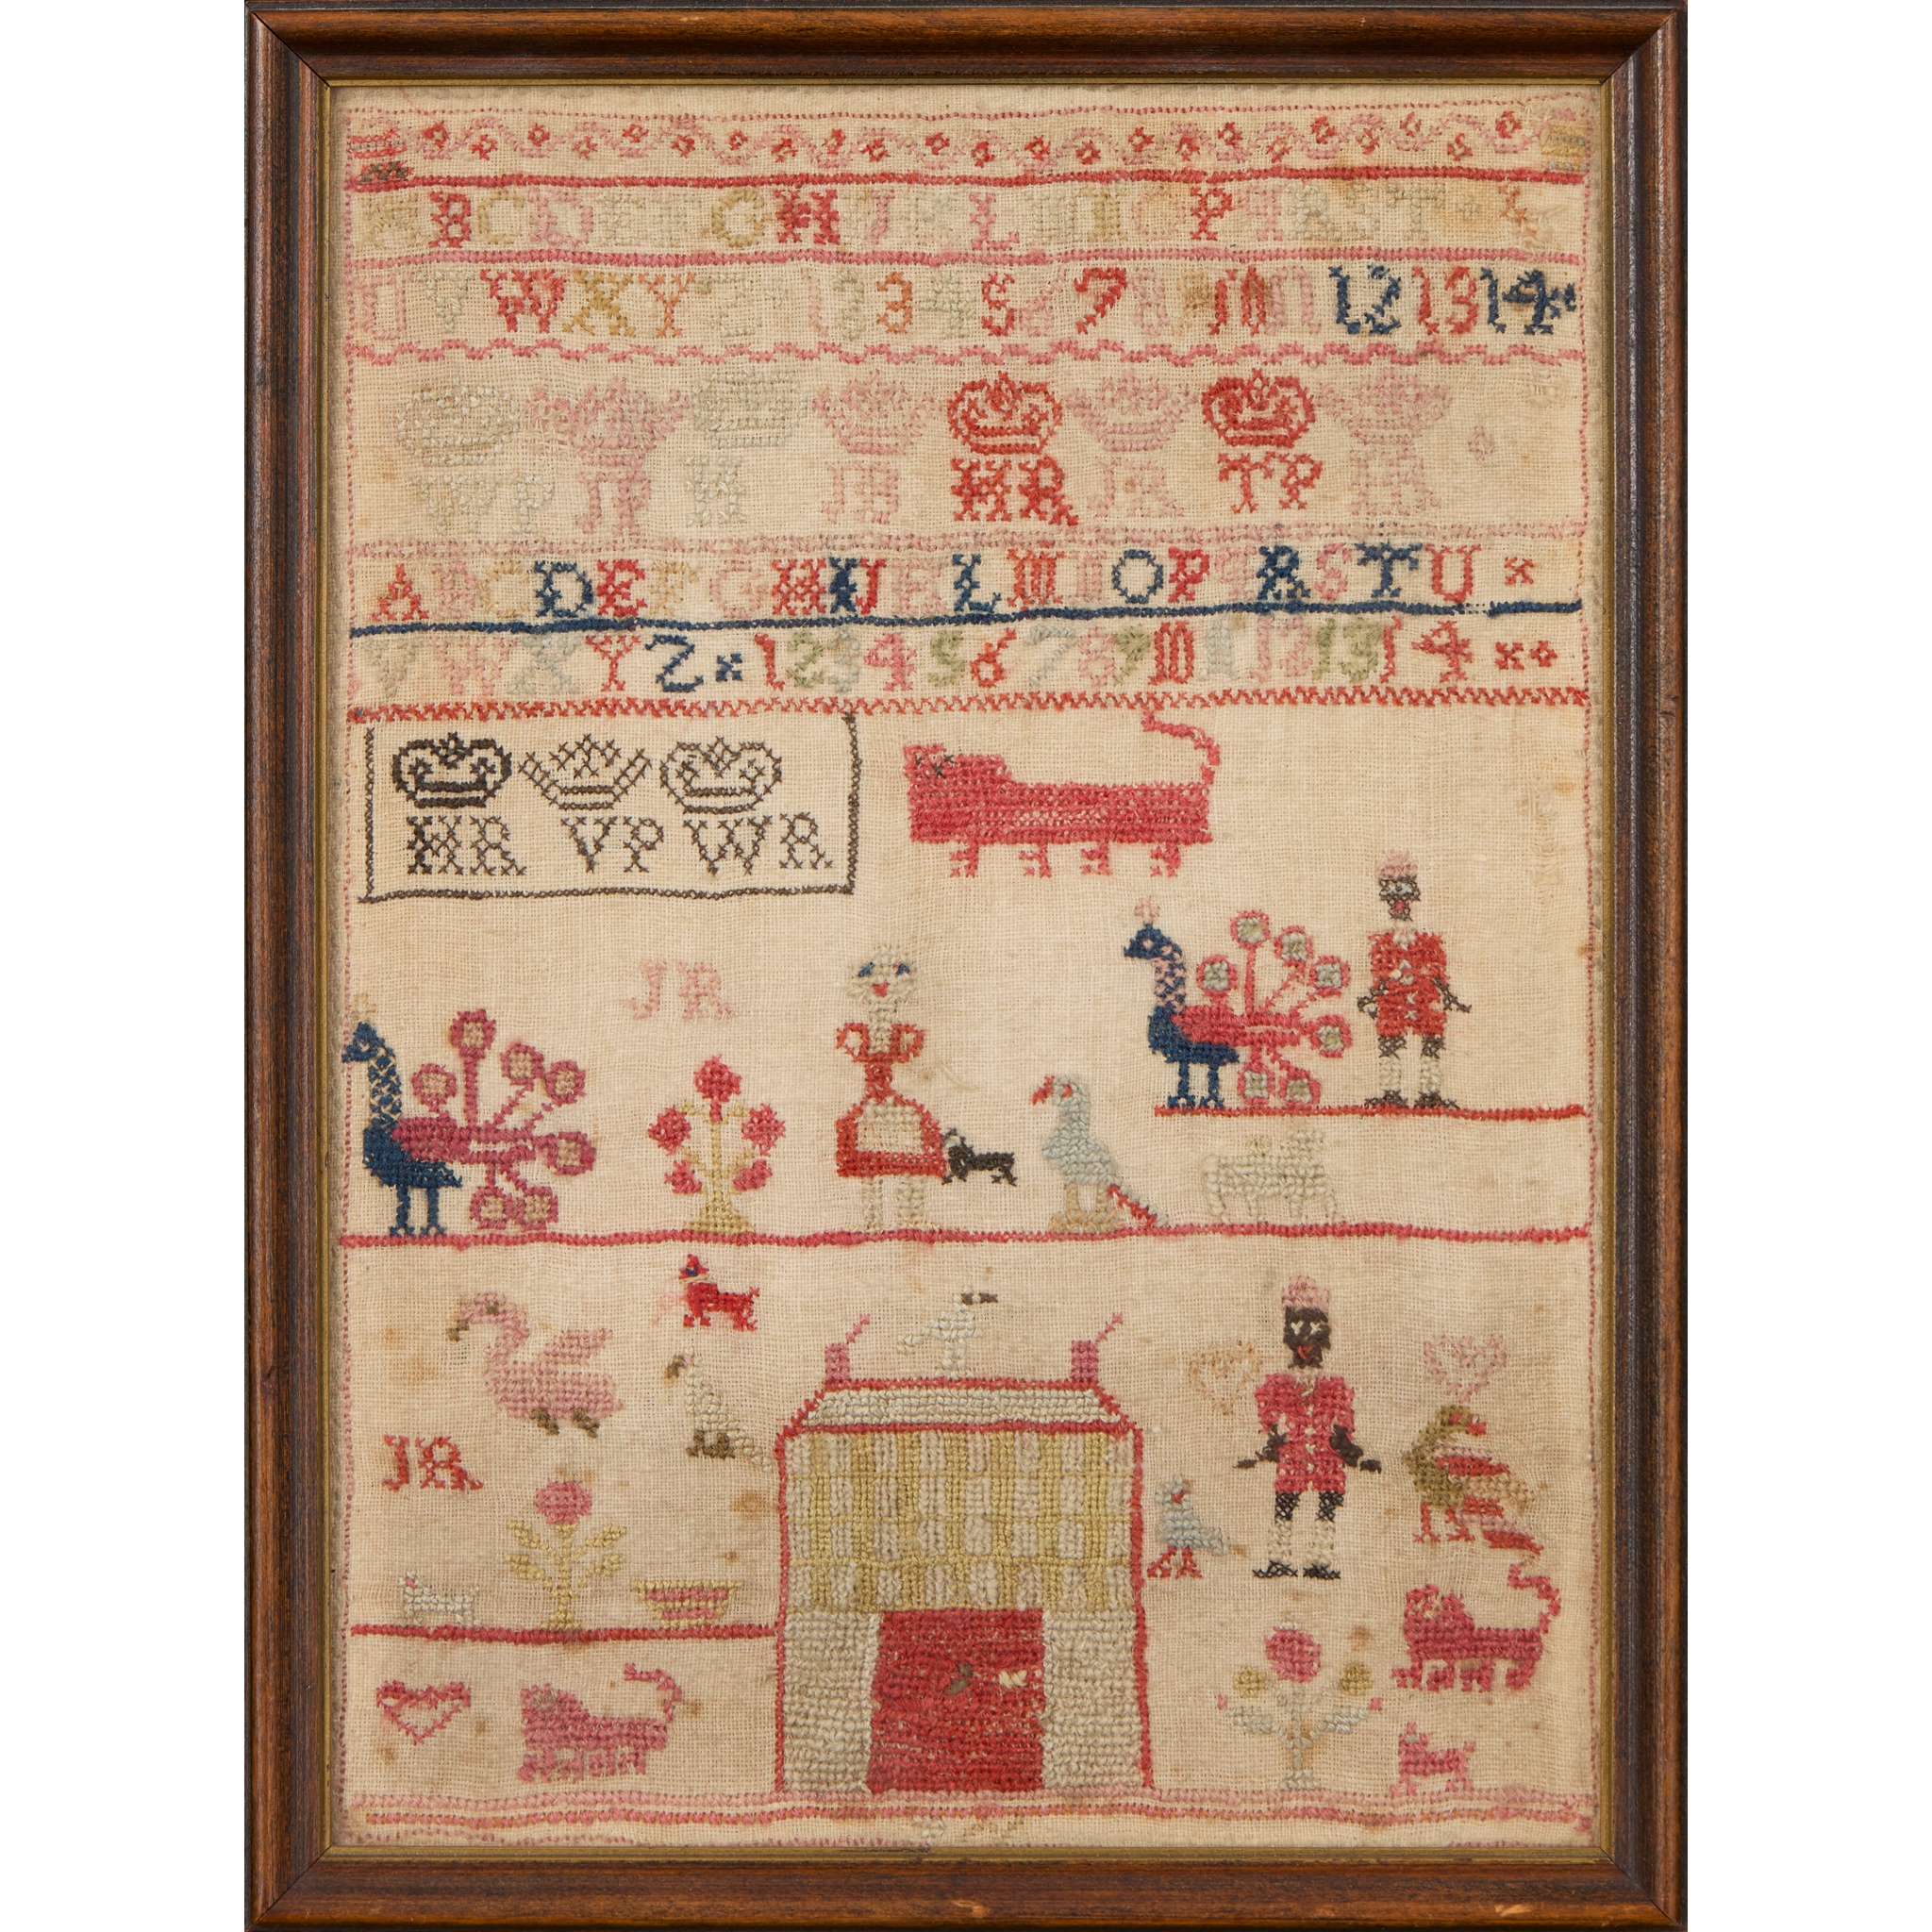 A B C D E F G H I J K L M N O P Q R S T
U V W X Y Z 1 2 3 4 5 6 7 8 9 10 11 12 13 14
WP JP H JH HR JR TP HR
A B C D E F G H I J K L M N O P Q R S T U
V W X Y Z 1 2 3 4 5 6 7 8 9 10 11 12 13 14
HR VP WR
JR
JR